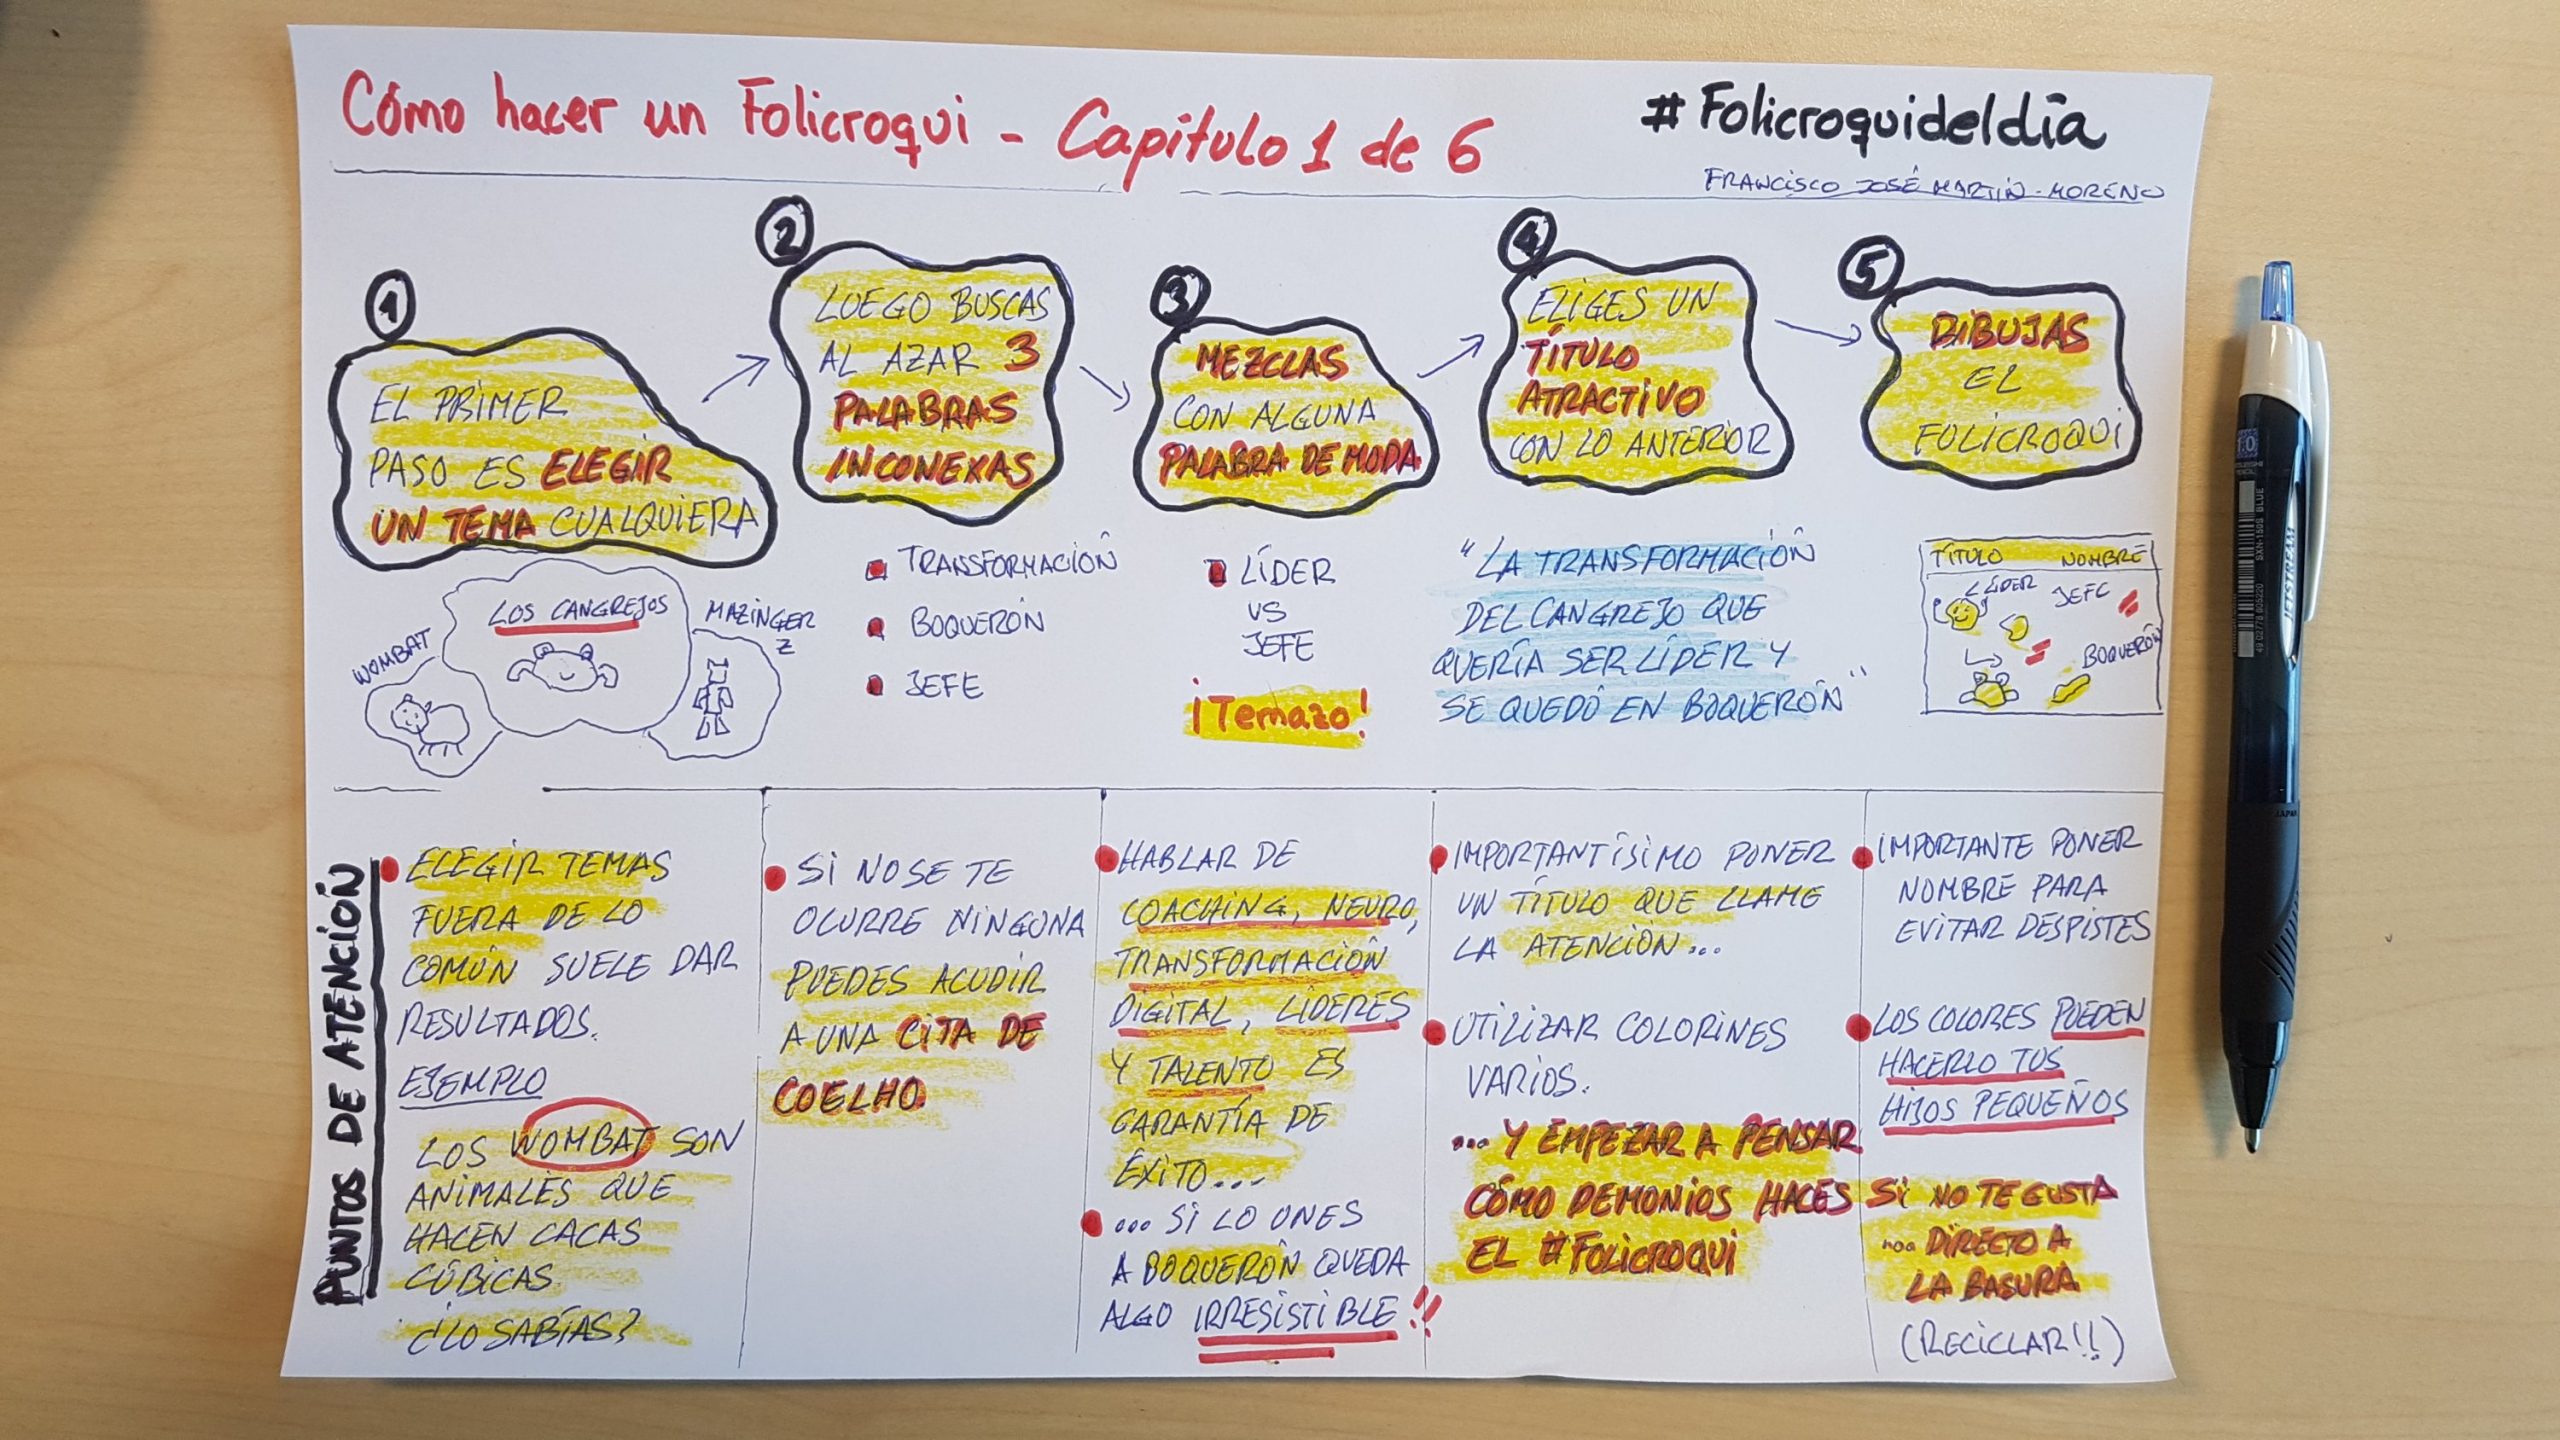 Cómo hacer un Folicroqui - Capítulo 1 de 6
#Folicroquideldía
FRANCISCO JOSÉ MARTÍN-MORENO
1
EL PRIMER
PASO ES ELEGIR
UN TEMA CUALQUIERA
2
LUEGO BUSCAS
AL AZAR 3
PALABRAS
INCONEXAS
3
MEZCLAS
CON ALGUNA
PALABRA DE MODA
4
ELIGES UN
TÍTULO
ATRACTIVO
CON LO ANTERIOR
5
DIBUJAS
EL
FOLICROQUI
WOMBAT
LOS CANGREJOS
MAZINGER
Z
TRANSFORMACIÓN
BOQUERÓN
JEFE
LÍDER
VS
JEFE
¡Temazo!
"LA TRANSFORMACIÓN
DEL CANGREJO QUE
QUERÍA SER LÍDER Y
SE QUEDÓ EN BOQUERÓN"
TÍTULO NOMBRE
LÍDER
JEFE
BOQUERÓN
PUNTOS DE ATENCIÓN
ELEGIR TEMAS
FUERA DE LO
COMÚN SUELE DAR
RESULTADOS.
EJEMPLO
LOS WOMBAT SON
ANIMALES QUE
HACEN CACAS
CÚBICAS.
¿LO SABÍAS?
SI NO SE TE
OCURRE NINGUNA
PUEDES ACUDIR
A UNA CITA DE
COELHO.
HABLAR DE
COACHING, NEURO,
TRANSFORMACIÓN
DIGITAL, LÍDERES
Y TALENTO ES
GARANTÍA DE
ÉXITO...
... SI LO UNES
A BOQUERÓN QUEDA
ALGO IRRESISTIBLE!!
IMPORTANTÍSIMO PONER
UN TÍTULO QUE LLAME
LA ATENCIÓN...
UTILIZAR COLORINES
VARIOS.
... Y EMPEZAR A PENSAR
CÓMO DEMONIOS HACES
EL #FOLICROQUI
IMPORTANTE PONER
NOMBRE PARA
EVITAR DESPISTES
LOS COLORES PUEDEN
HACERLO TUS
HIJOS PEQUEÑOS
SI NO TE GUSTA
... DIRECTO A
LA BASURA
(RECICLAR!!)
1.0
SXN-150S BLUE
49 02778 805220
JETSTREAM
JAPAN